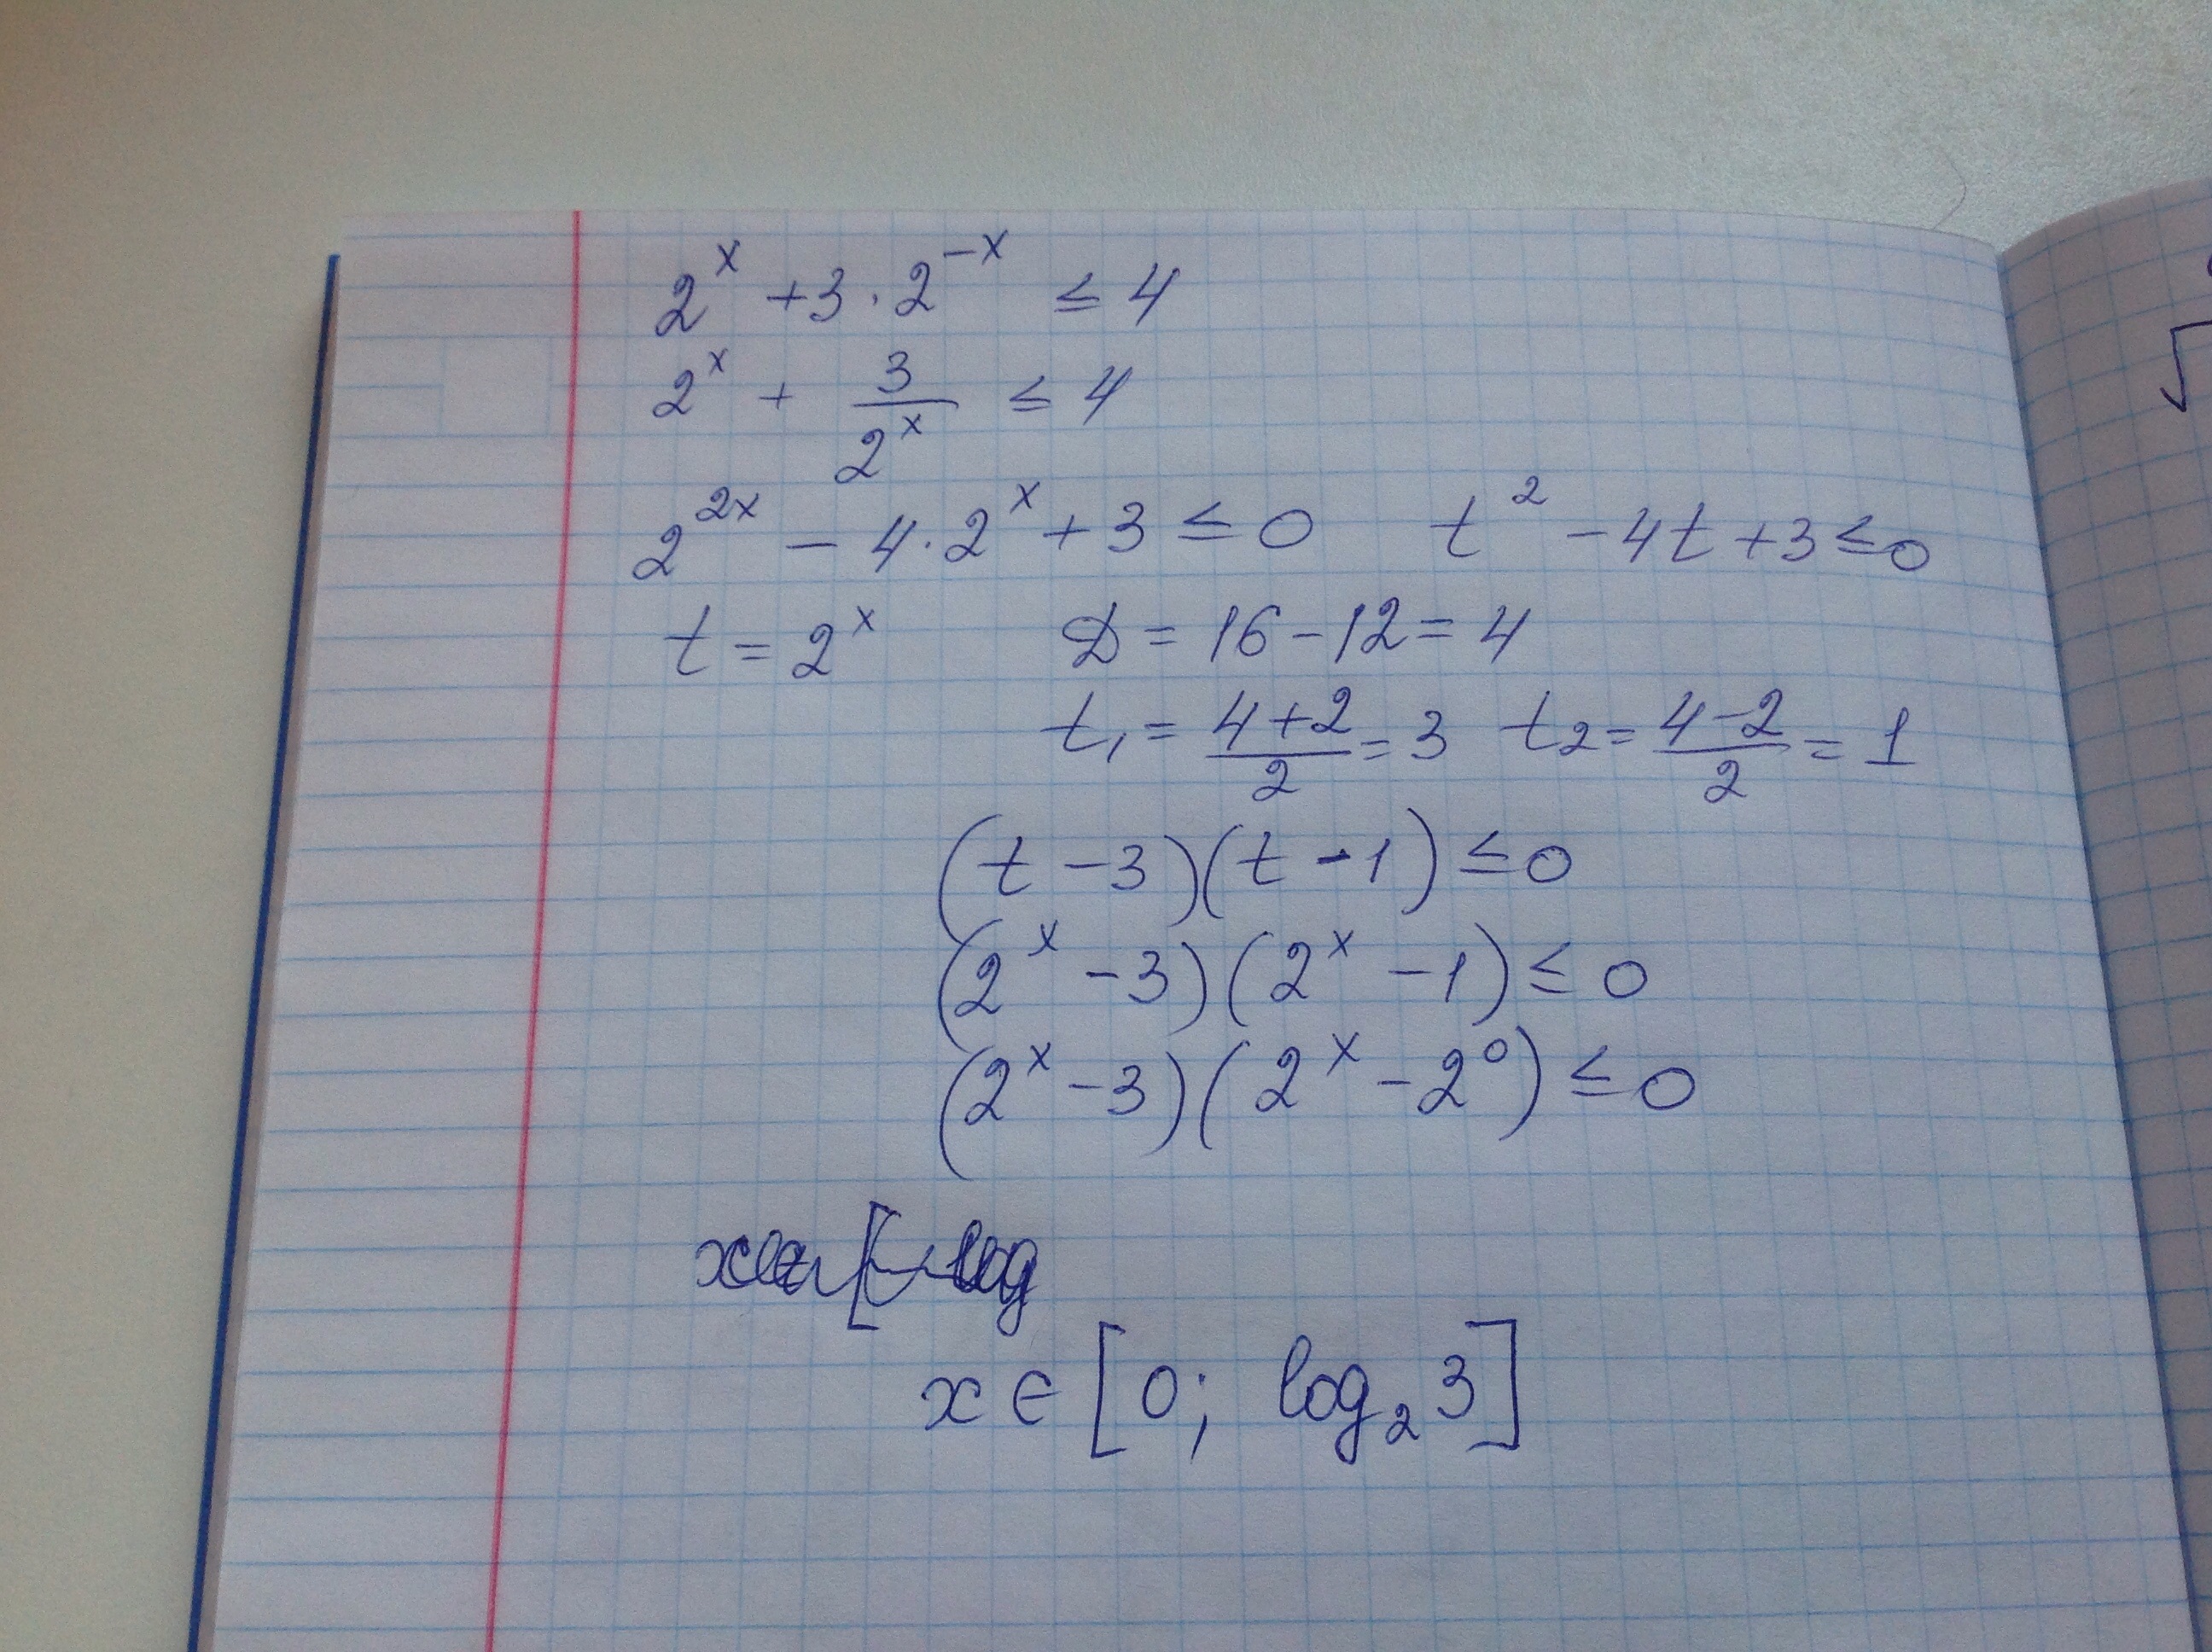 2^x + 3 · 2^-x ≤ 4
2^x + 3/2^x ≤ 4
2^2x − 4 · 2^x + 3 ≤ 0   t^2 − 4t + 3 ≤ 0
t = 2^x   D = 16 − 12 = 4
t₁ = (4+2)/2 = 3   t₂ = (4−2)/2 = 1
(t − 3)(t − 1) ≤ 0
(2^x − 3)(2^x − 1) ≤ 0
(2^x − 3)(2^x − 2^0) ≤ 0
x ∈ [0; log₂ 3]